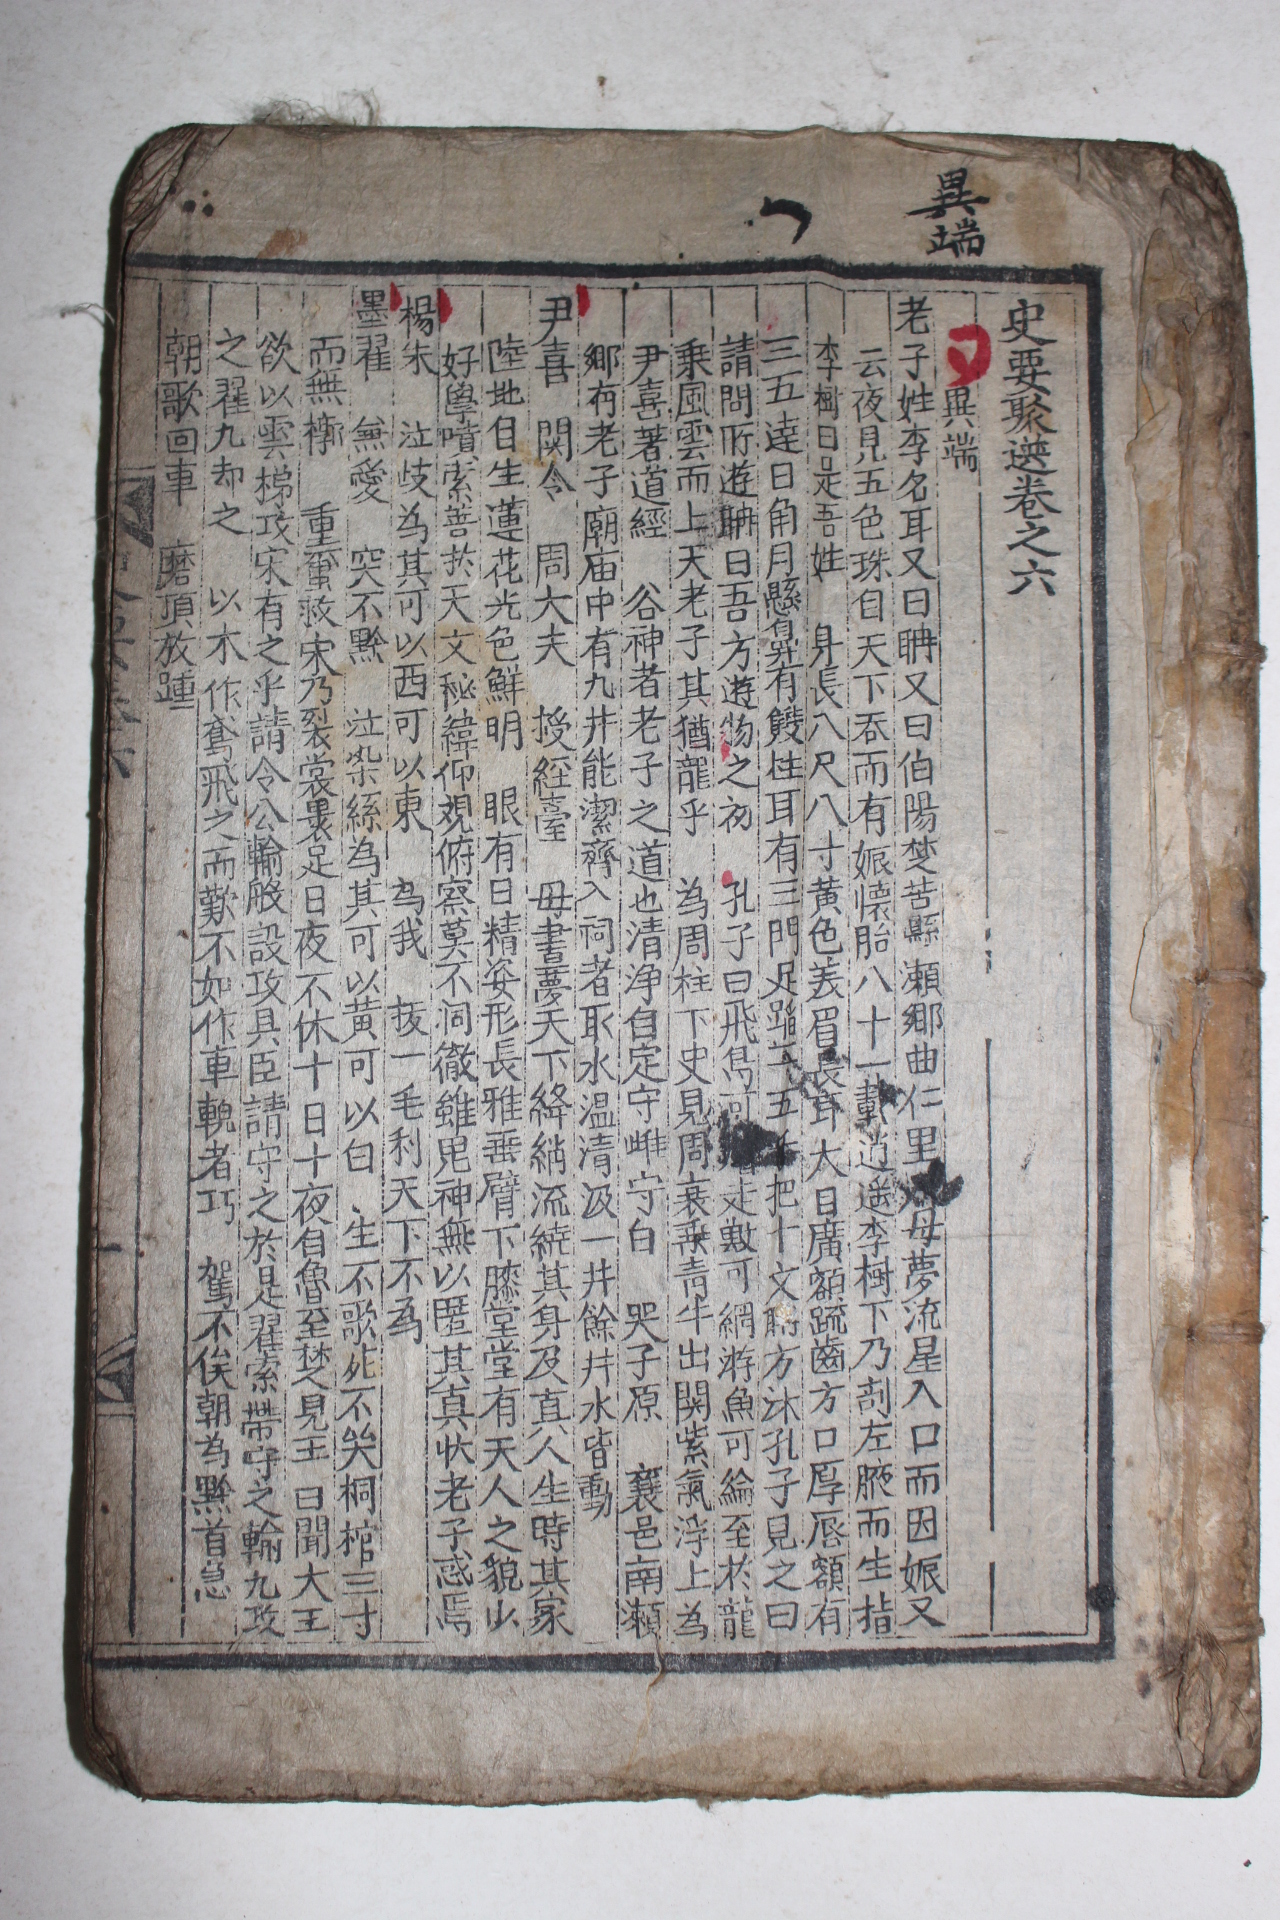 異端
史要聚選卷之六
異端
老子姓李名耳又曰聃又曰伯陽楚苦縣瀬鄉曲仁里人母夢流星入口而因娠又
云夜見五色珠自天下吞而有娠懷胎八十一載逍遙李樹下乃剖左腋而生指
李樹曰是吾姓 身長八尺八寸黃色美眉長耳大目廣額疏齒方口厚唇額有
三五達日角月懸鼻有雙柱耳有三門足蹈二五手把十文聃方沐孔子見之曰
請問所遊聃曰吾方遊物之初 孔子曰飛鳥可 走獸可網游魚可綸至於龍
乘風雲而上天老子其猶龍乎 為周柱下史見周衰乘靑牛出関紫氣浮上為
尹喜著道經 谷神者老子之道也清浄自定守雌守白 哭子原 襄邑南瀬
鄉有老子廟庙中有九井能潔齊入祠者取水温清汲一井餘井水皆動
尹喜 関令 周大夫 授經臺 母書夢天下絳綃流繞其身及真人生時其家
陸地自生蓮花光色鮮明 眼有日精姿形長雅垂臂下膝堂堂有天人之貌少
好學墳索善於天文秘緯仰視俯察莫不洞徹雖鬼神無以匿其真状老子惑焉
楊朱 泣歧為其可以西可以東 為我 拔一毛利天下不為
墨翟 無愛 突不黔 泣染絲為其可以黃可以白 生不歌死不矣桐棺三寸
而無槨 重蠒救宋乃裂裳裹足日夜不休十日十夜自魯至楚見王曰聞大王
欲以雲梯攻宋有之乎請令公輸般設攻具臣請守之於是翟索帶守之輸九攻
之翟九却之 以木作鳶飛之而歎不如作車輗者巧 駕不俟朝為黔首急
朝歌回車 磨頂放踵